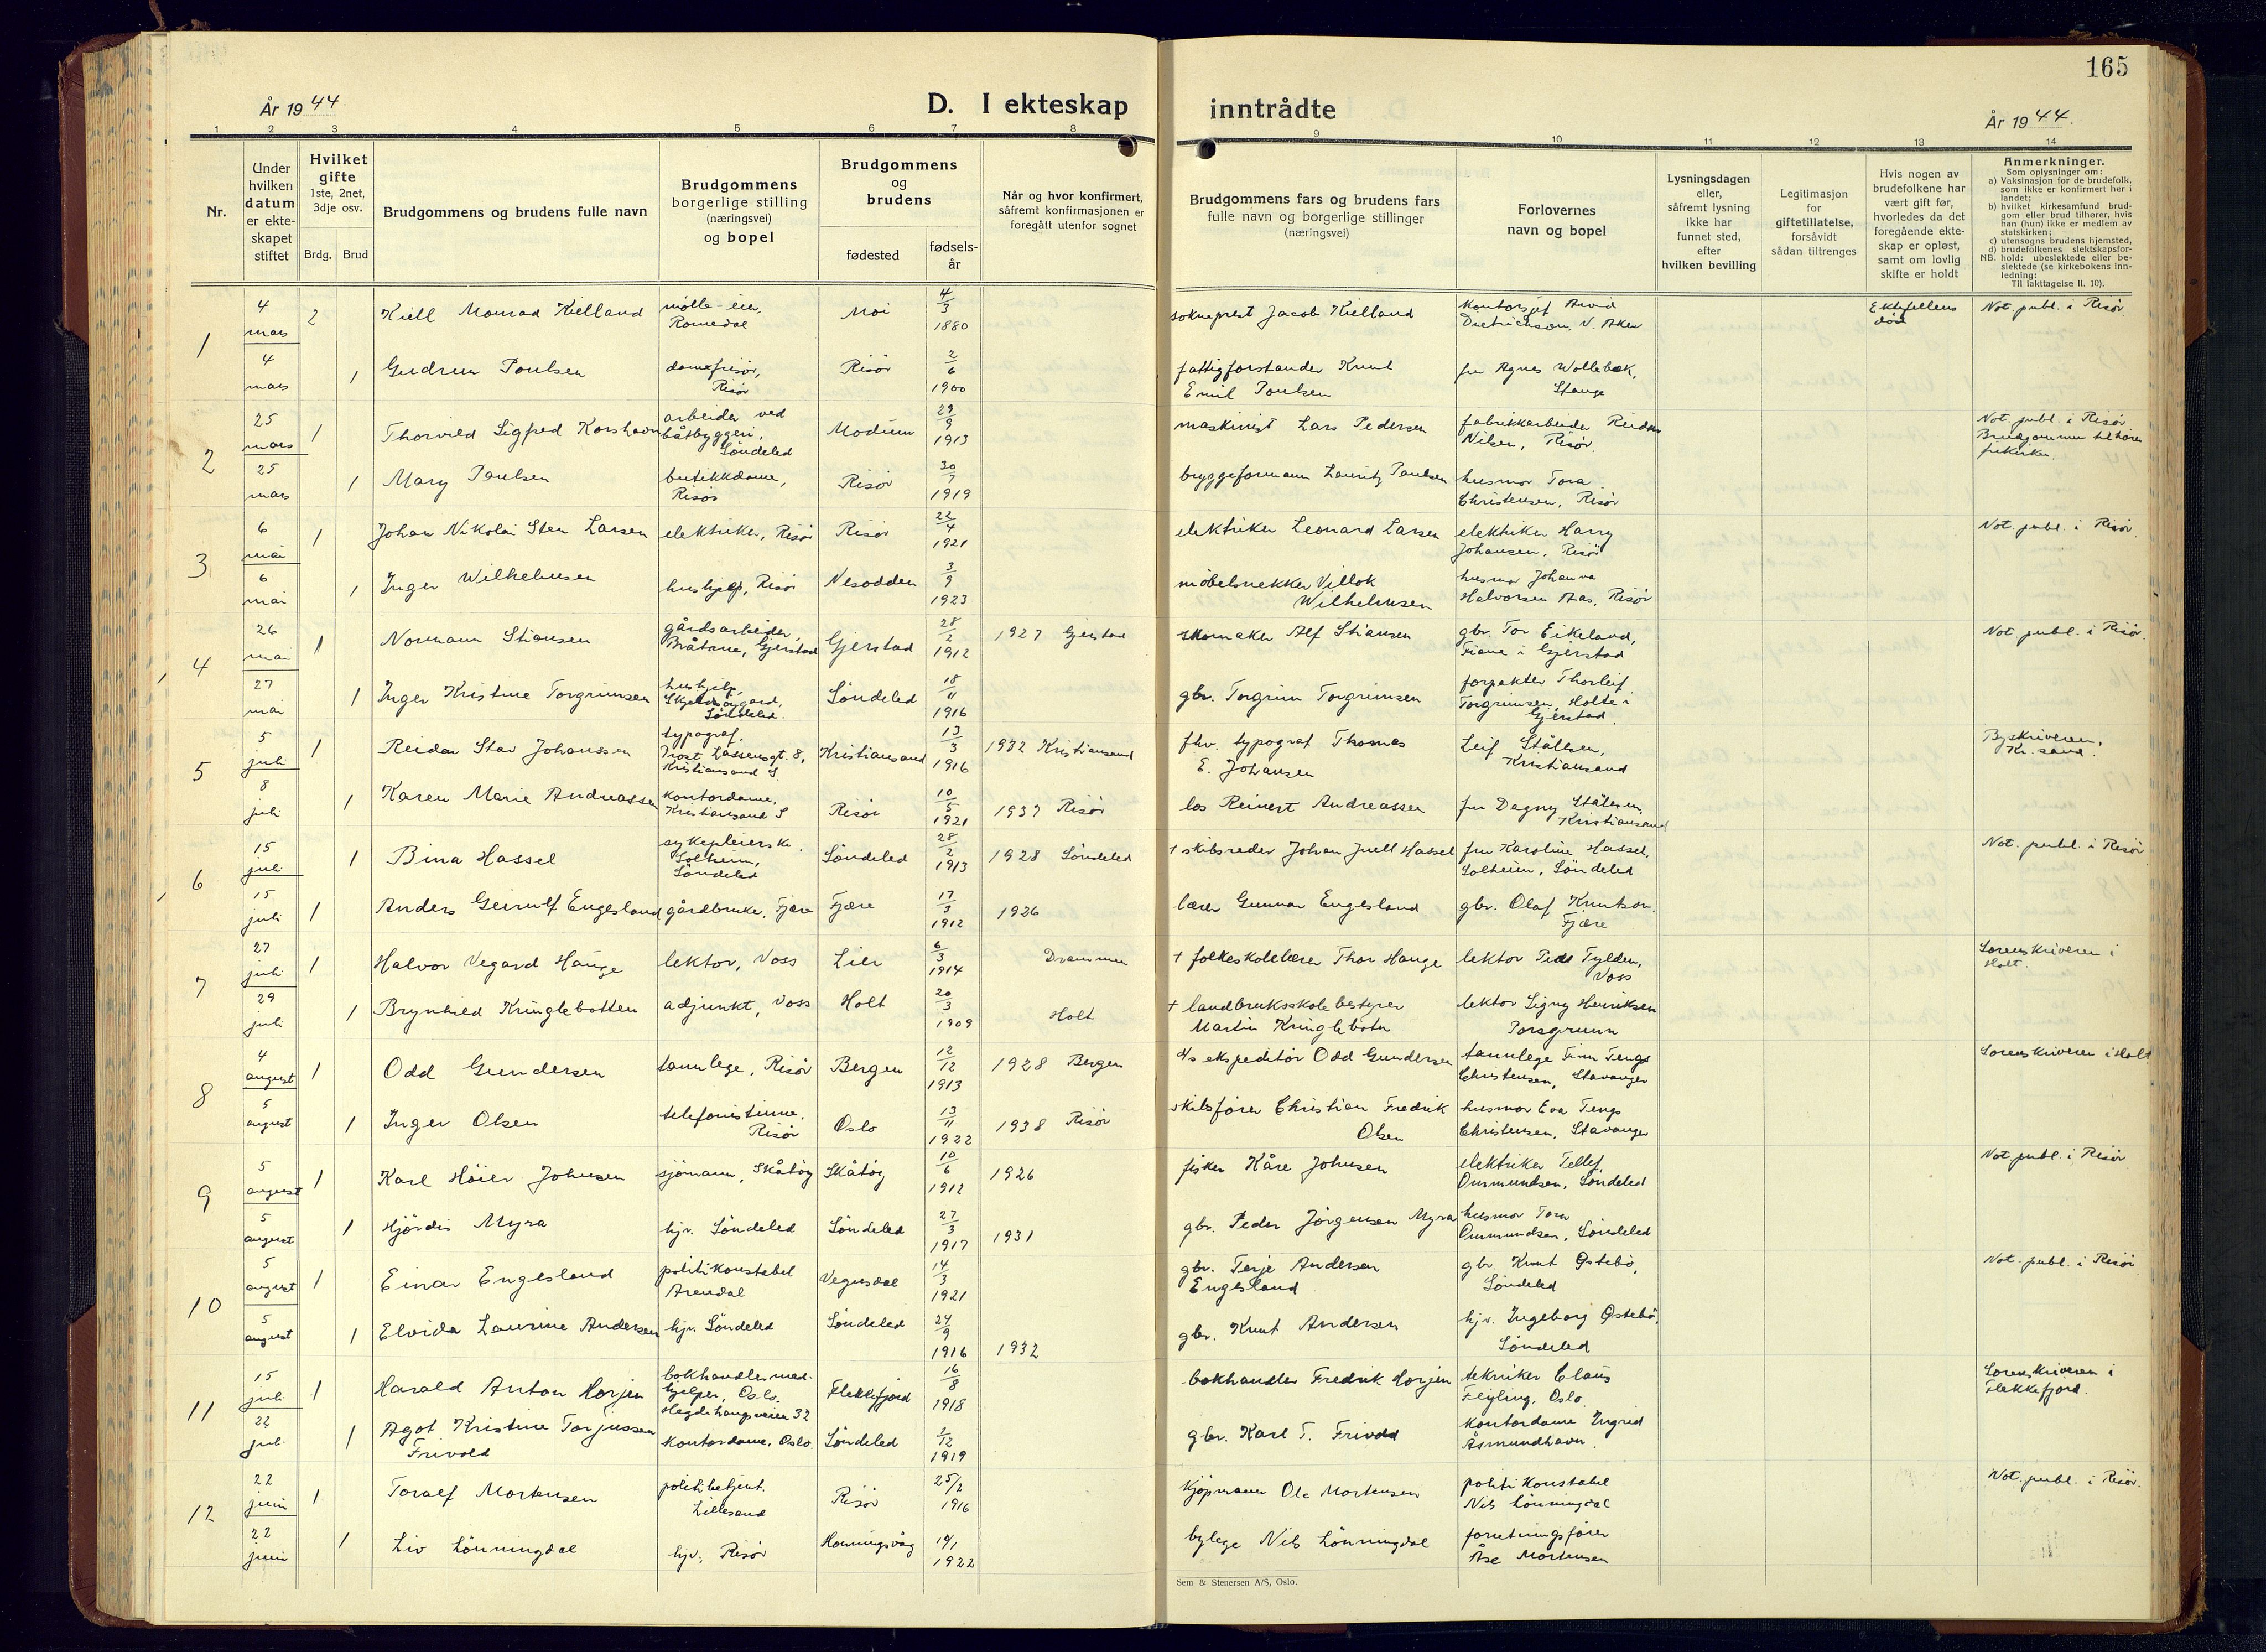 165
År 1944.
D. I ekteskap inntrådte
År 1944.
1 2 3 4 5 6 7 8 9 10 11 12 13 14
Nr.
Under hvilken datum er ekte- skapet stiftet
Hvilket gifte 1ste, 2net, 3dje osv.
Brdg. Brud
Brudgommens og brudens fulle navn
Brudgommens borgerlige stilling (næringsvei) og bopel
Brudgommens og brudens
fødested
fødsels- år
Når og hvor konfirmert, såfremt konfirmasjonen er foregått utenfor sognet
Brudgommens fars og brudens fars fulle navn og borgerlige stillinger (næringsvei)
Forlovernes navn og bopel
Lysningsdagen eller, såfremt lysning ikke har funnet sted, efter hvilken bevilling
Legitimasjon for giftetillatelse, forsåvidt sådan tiltrenges
Hvis nogen av brudefolkene har vært gift før, hvorledes da det foregående ekte- skap er opløst, samt om lovlig skifte er holdt
Anmerkninger.
Som oplysninger om:
a) Vaksinasjon for de brudefolk, som ikke er konfirmert her i landet;
b) hvilket kirkesamfund brud- gom eller brud tilhører, hvis han (hun) ikke er medlem av statskirken;
c) utensogns brudens hjemsted,
d) brudefolkenes slektskapsfor- hold: ubeslektede eller be- slektede (se kirkebokens inn- ledning:
NB.
Til iakttagelse II. 10).
1 4 mars 2 Kiell Monrad Kielland mølle-eier, Romedal Moi 4/3 1880 sokneprest Jacob Kielland kontorsjef Arvid Dietrichson, V. Aker Ektefellens død Not. publ. i Risør
4 mars 1 Gudrun Poulsen damefrisør, Risør Risør 2/6 1900 fattigforstander Knut Emil Poulsen fru Agnes Wollebæk, Stange
2 25 mars 1 Thorvild Sigfred Korshavn arbeider ved båtbyggeri, Söndeled Modum 29/9 1913 maskinist Lars Pedersen fabrikkarbeider Reidar Nilsen, Risør. Not. publ. i Risør Brudgommen tilhører frikirken.
25 mars 1 Mary Paulsen butikkdame, Risør Risør 30/7 1919 bryggeformann Lauritz Paulsen husmor Tora Christensen, Risør
3 6 mai 1 Johan Nikolai Sten Larsen elektriker, Risør Risør 22/4 1921 elektriker Leonard Larsen elektriker Harry Johansen, Risør Not. publ. i Risør.
6 mai 1 Inger Wilhelmsen hushjelp, Risør Nesodden 3/9 1923 möbelsnekker Villok Wilhelmsen husmor Johanna Halvorsen Aas, Risør
4 26 mai 1 Normann Stiansen gårdsarbeider, Bråtane, Gjerstad Gjerstad 28/2 1912 1927 Gjerstad skomaker Alf Stiansen gbr. Tor Eikeland, Fiane i Gjerstad Not. publ. i Risør.
27 mai 1 Inger Kristine Torgrimsen hushjelp, Söndeled. Söndeled 18/11 1916 gbr. Torgrim Torgrimsen forpakter Thorleif Torgrimsen, Holte i Gjerstad.
5 5 juli 1 Reidar Stav Johanssen typograf. Prost Lassensgt. 8, Kristiansand S. Kristiansand 13/3 1916 1932 Kristiansand fhv. typograf Thomas E. Johansen Leif Stålesen, Kristiansand Byskriveren, Kr. sand.
8 juli 1 Karen Marie Andreassen kontordame, Kristiansand S Risør 10/5 1921 1937 Risør los Reinert Andreassen fru Dagny Stålesen, Kristiansand
6 15 juli 1 Bina Hassel sykepleierske. Solheim, Söndeled Söndeled 28/2 1913 1928 Söndeled + skibsreder Johan Juell Hassel fru Karoline Hassel, Solheim, Söndeled Not. publ. i Risør
15 juli 1 Anders Geirulf Engesland gårdbruker, Fjære Fjære 17/3 1912 1926 lærer Gunnar Engesland gbr. Olaf Knutson. Fjære
7 27 juli 1 Halvor Vegard Hauge lektor, Voss Lier 6/3 1914 Drammen + folkeskolelærer Thor Hauge lektor Peder Tylden, Voss Sorenskriveren i Holt.
29 juli 1 Brynhild Kringlebotten adjunkt, Voss Holt 20/3 1909 Holt + landbruksskolebestyrer Martin Kringlebotn lektor Signy Henriksen Porsgrunn
8 4 august 1 Odd Gundersen tannlege, Risør Bergen 12/12 1913 1928 Bergen d/s ekspeditör Odd Gundersen tannlege Finn Tengs Christensen, Stavanger Sorenskriveren i Holt
5 august 1 Inger Olsen telefonistinne. Risør Oslo 13/11 1922 1938 Risør skibsfører Christian Fredrik Olsen husmor Eva Tengs Christensen, Stavanger
9 5 august 1 Karl Höier Johnsen sjömann, Skåtöy Skåtöy 10/6 1912 1926 fisker Kåre Johnsen elektriker Tellef Ommundsen, Söndeled Not. publ. i Risør
5 august 1 Hjördis Myra hjv. Söndeled Söndeled 27/3 1917 1931 gbr. Peder Jörgensen Myra husmor Tora Ommundsen, Söndeled
10 5 august 1 Einar Engesland politikonstabel Arendal Vegusdal 14/3 1921 gbr. Terje Andersen Engesland gbr. Knut Østebö, Söndeled Not. publ. i Risør
5 august 1 Elvida Laurine Andersen hjv. Söndeled Söndeled 24/9 1916 1932 gbr. Knut Andersen hjv. Ingeborg Østebö, Söndeled
11 15 juli 1 Harald Anton Horjen bokhandlermed- hjelper, Oslo. Hegdehaugsveien 32 Flekkefjord 16/8 1918 bokhandler Fredrik Horjen tekniker Claus Feyling, Oslo Sorenskriveren i Flekkefjord.
22 juli 1 Agot Kristine Torjussen Frivold kontordame, Oslo. Söndeled 2/12 1919 gbr. Karl T. Frivold kontordame Ingrid Åsmundhavn.
12 22 juni 1 Toralf Mortensen politibetjent. Lillesand Risør 25/2 1916 kjöpmann Ole Mortensen politikonstabel Nils Lönningdal Not. publ. i Risør.
22 juni 1 Liv Lönningdal hjv., Risør Honningsvåg 14/1 1922 bylege Nils Lönningdal forretningsfører Åse Mortensen
Sem & Stenersen A/S, Oslo.